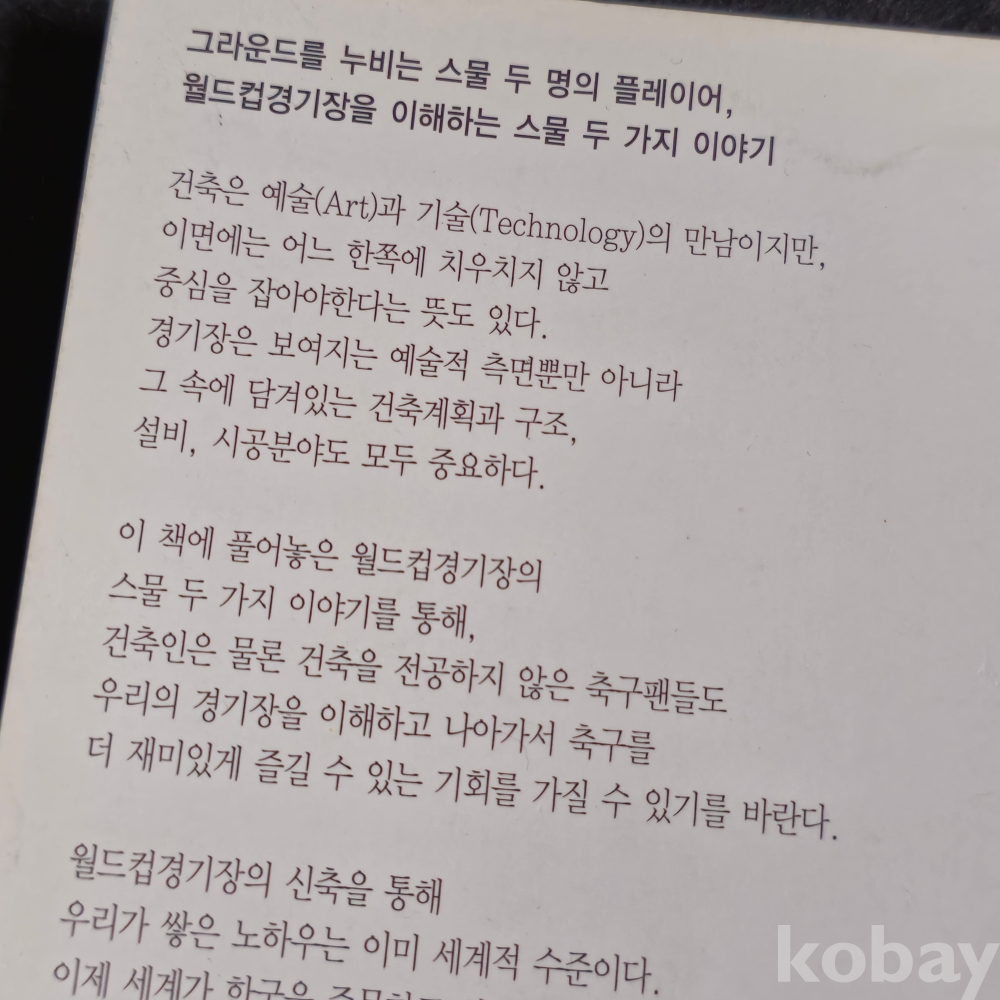 그라운드를 누비는 스물 두 명의 플레이어,
월드컵경기장을 이해하는 스물 두 가지 이야기
건축은 예술(Art)과 기술(Technology)의 만남이지만,
이면에는 어느 한쪽에 치우치지 않고
중심을 잡아야한다는 뜻도 있다.
경기장은 보여지는 예술적 측면뿐만 아니라
그 속에 담겨있는 건축계획과 구조,
설비, 시공분야도 모두 중요하다.
이 책에 풀어놓은 월드컵경기장의
스물 두 가지 이야기를 통해,
건축인은 물론 건축을 전공하지 않은 축구팬들도
우리의 경기장을 이해하고 나아가서 축구를
더 재미있게 즐길 수 있는 기회를 가질 수 있기를 바란다.
월드컵경기장의 신축을 통해
우리가 쌓은 노하우는 이미 세계적 수준이다.
이제 세계가 한국을
kobay